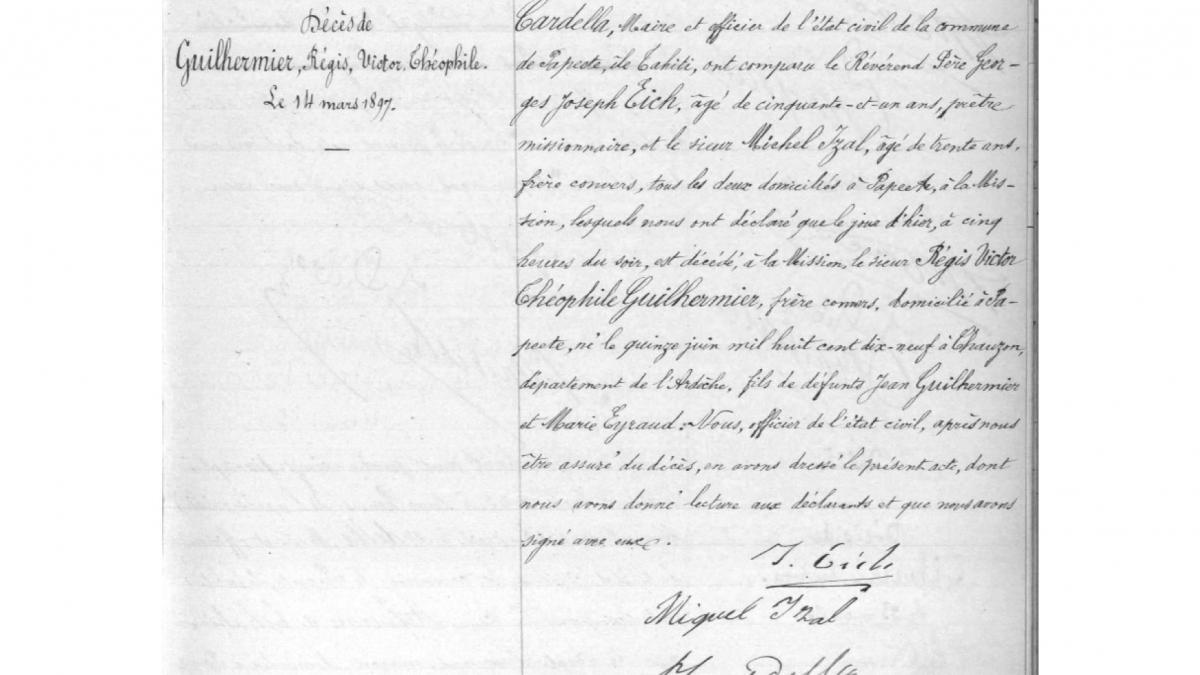 Décès de
Guilhermier, Régis, Victor, Théophile.
Le 14 mars 1897.
Cardella, Maire et officier de l'état civil de la commune
de Papeete, île Tahiti, ont comparu le Révérend Père Geor-
ges Joseph Eich, âgé de cinquante-et-un ans, prêtre
missionnaire, et le sieur Michel Izal, âgé de trente ans,
frère convers, tous les deux domiciliés à Papeete, à la Mis-
sion, lesquels nous ont déclaré que le jour d'hier, à cinq
heures du soir, est décédé, à la Mission, le sieur Régis Victor
Théophile Guilhermier, frère convers, domicilié à Pa-
peete, né le quinze juin mil huit cent dix-neuf à Chauzon,
département de l'Ardèche, fils de défunts Jean Guilhermier
et Marie Eyraud. Nous, officier de l'état civil, après nous
être assuré du décès, en avons dressé le présent acte, dont
nous avons donné lecture aux déclarants et que nous avons
signé avec eux.
Eich
Miguel Izal